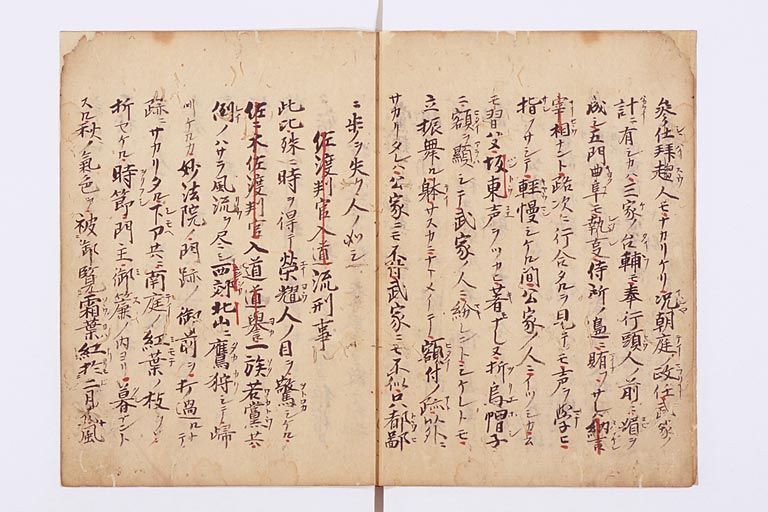 參仕拜趨人モナカリケリ況朝庭ノ政任武家ノ
計ニ有シカハ三家ノ台輔モ奉行頭人ノ前ニ媚ヲ
成シ五門曲阜モ執事侍所ノ邊ニ賄フサレハ納言
宰相ナント路次ニ行合タルヲ見テモ声ヲ学ヒ
指ヲサシテ軽慢シケル間公家ノ人々イツシカ
モ習ハヌ坂東声ヲツカヒ著モナレヌ折烏帽子
ニ額ヲ顯シテ武家ノ人ニ紛レントシケレトモ
立振舞ル躰サスカニナマメイテ額付ノ跡以外ニ
サカリタレハ公家ニモ不付武家ニモ不似只都鄙
ニ歩ヲ失シ人ノ如シ
佐渡判官入道流刑事
此比殊ニ時ヲ得テ榮耀人ノ目ヲ驚シケル
佐々木佐渡判官入道道譽一族若黨共
例ノハサラ風流ヲ尽シ西郊北山ニ鷹狩シテ帰
リケルカ妙法院ノ門跡ノ御前ヲ打過ルトテ
跡ニサカリタル下部共ニ南庭ノ紅葉ノ枝ヲソ
折セケル時節門主御簾ノ内ヨリ暮ナント
スル秋ノ氣色ヲ被御覧霜葉紅於二月花風